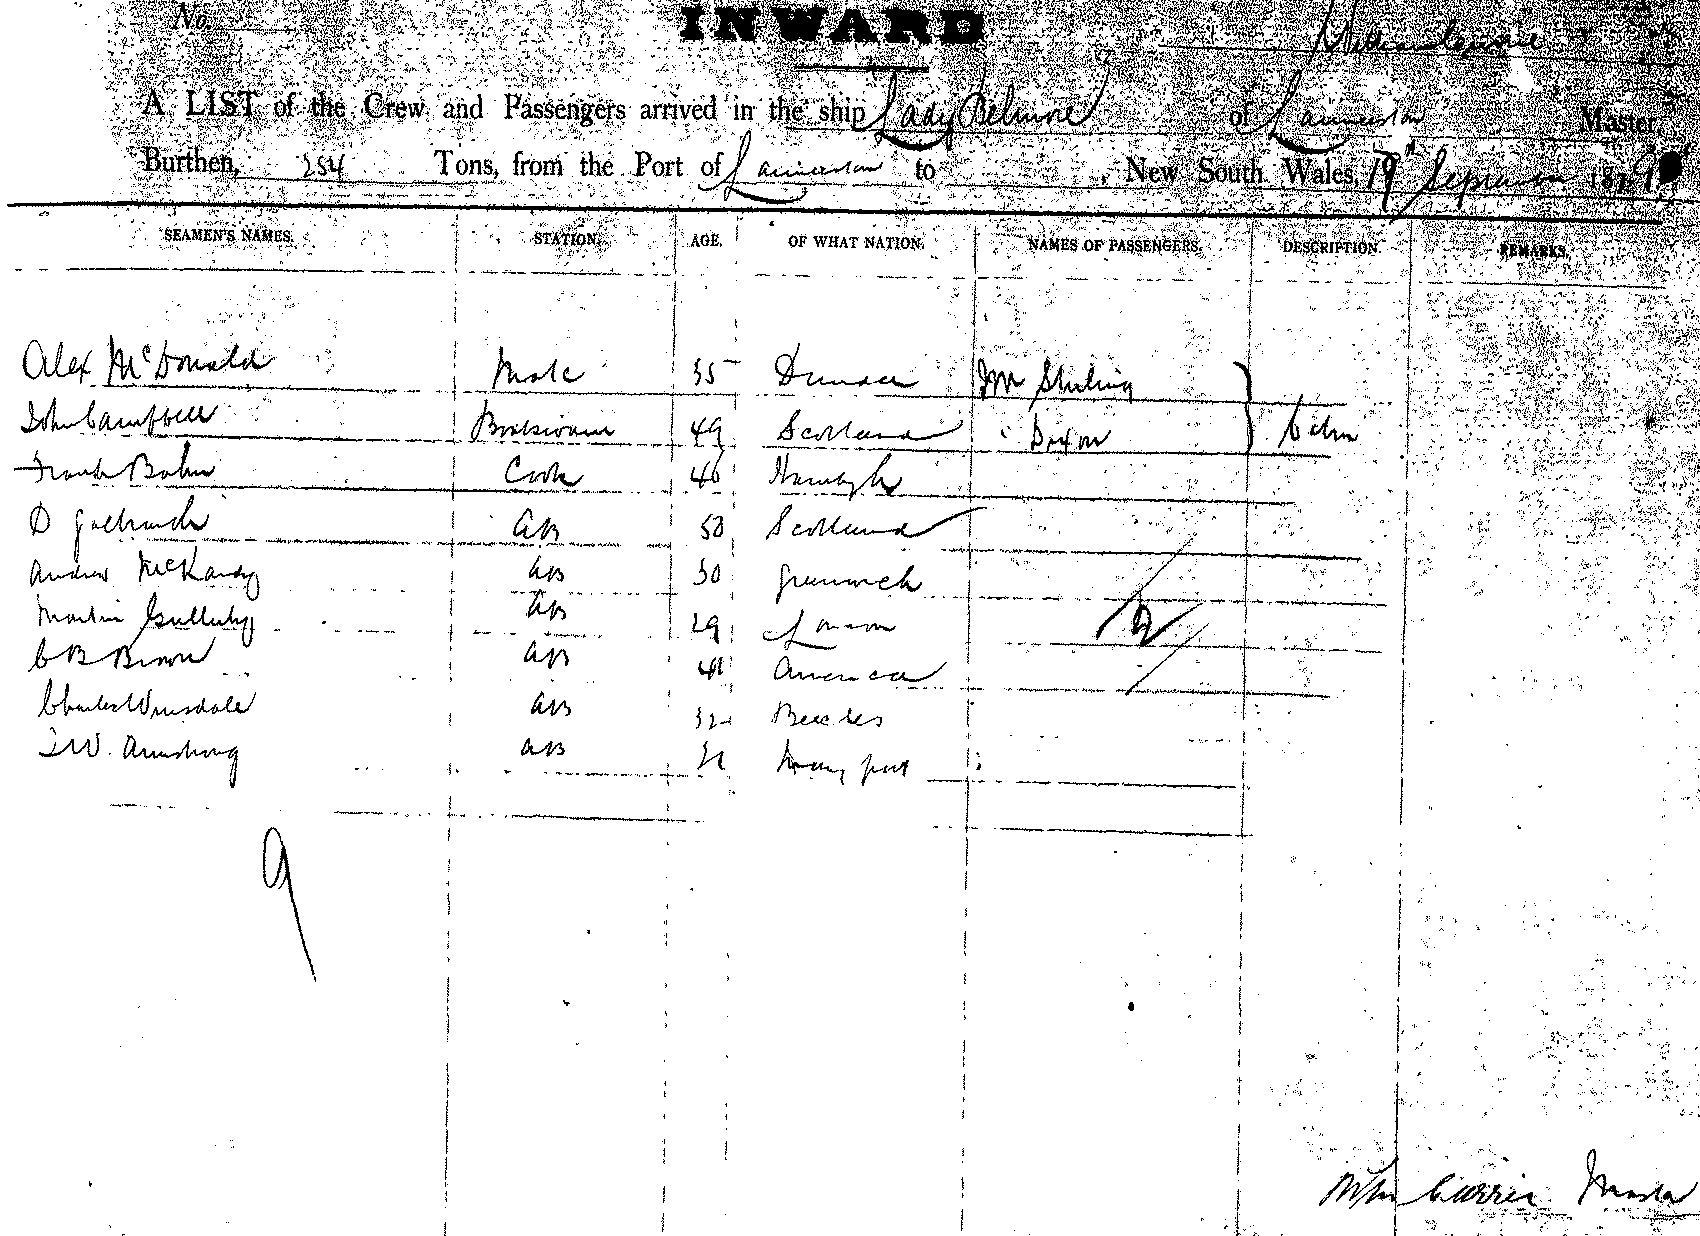 No.
INWARD
A LIST of the Crew and Passengers arrived in the ship Lady Belmore of Launceston Master,
Burthen, 254 Tons, from the Port of Launceston to , New South Wales, 19th September 187
SEAMEN'S NAMES. STATION. AGE. OF WHAT NATION. NAMES OF PASSENGERS. DESCRIPTION. REMARKS.
Alex McDonald Mate 35 Dundee Mr Stirling
John Campbell Boatswain 49 Scotland " Dixon Cabin
Frank Bohn Cook 46 Hamburgh
D Galbraith AB 50 Scotland
Andrew McKandy AB 30 Greenwich
Martin AB 29 London 2
C B Brown AB America
Charles AB 32 Beccles
J W. Armstrong AB Maryport
9
Currie Master